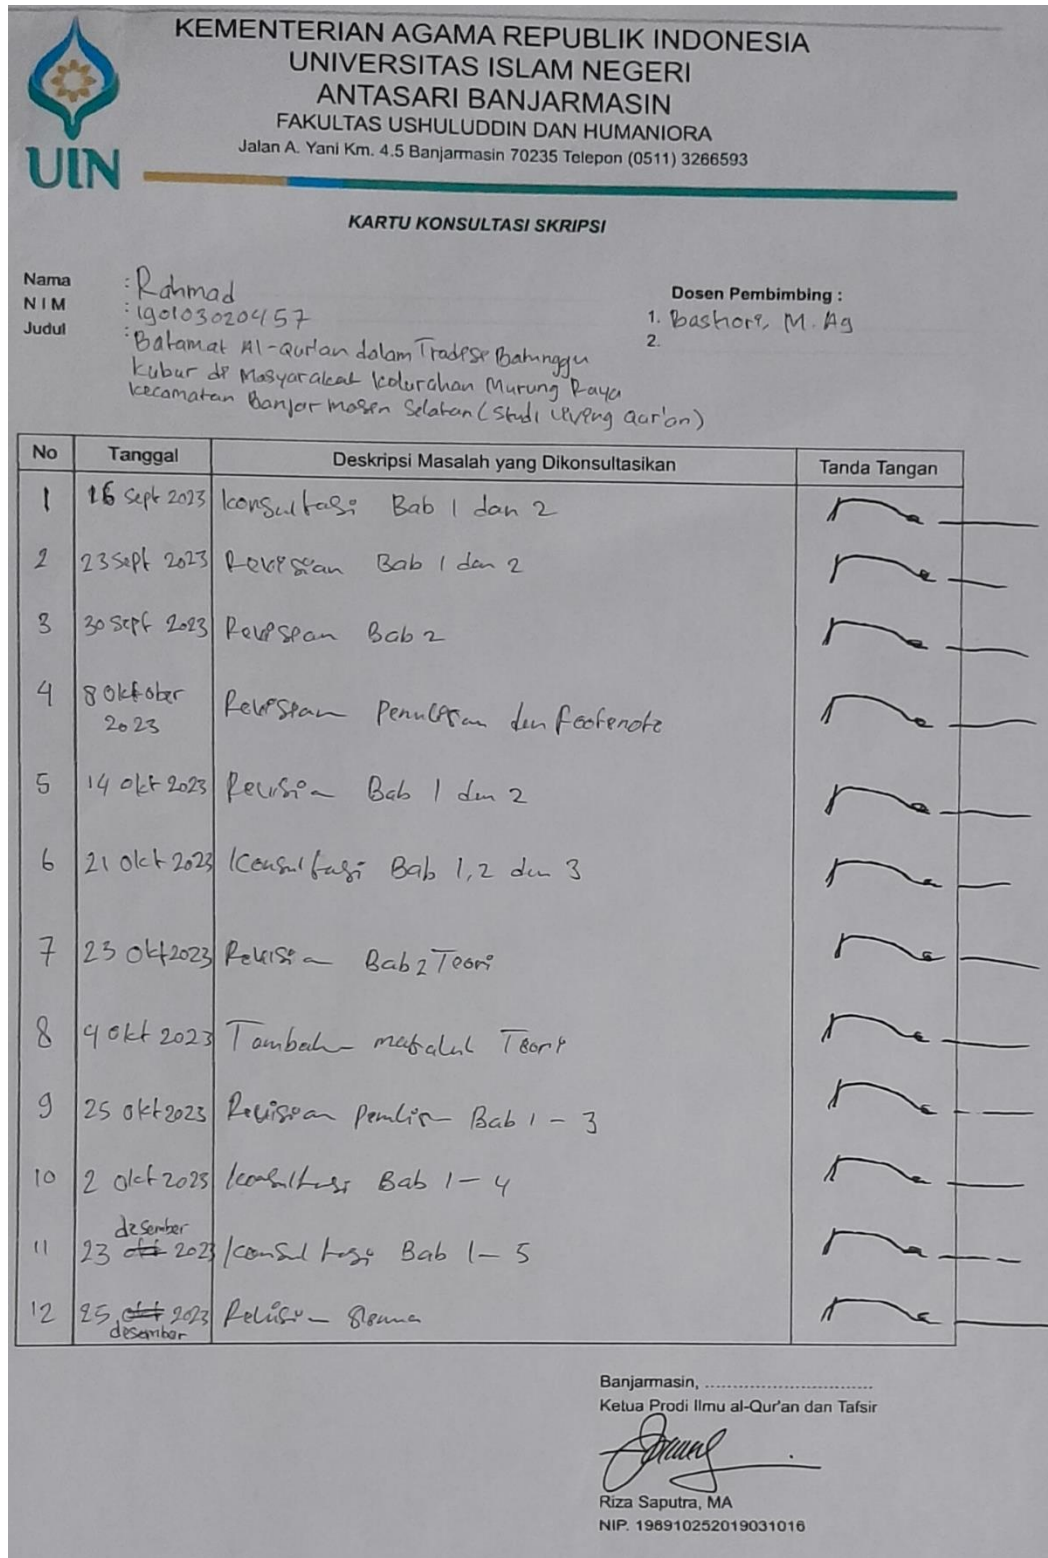 KEMENTERIAN AGAMA REPUBLIK INDONESIA
UNIVERSITAS ISLAM NEGERI
ANTASARI BANJARMASIN
FAKULTAS USHULUDDIN DAN HUMANIORA
Jalan A. Yani Km. 4.5 Banjarmasin 70235 Telepon (0511) 3266593
UIN
KARTU KONSULTASI SKRIPSI
Nama : Rahmad
NIM : 190103020457
Judul : Batamat Al-Qur'an dalam Tradisi Batunggu
Kubur di Masyarakat Kelurahan Murung Raya
Kecamatan Banjarmasin Selatan (Studi Living Qur'an)
Dosen Pembimbing :
1. Bashori, M. Ag
2.
No Tanggal Deskripsi Masalah yang Dikonsultasikan Tanda Tangan
1 16 Sept 2023 Konsultasi Bab 1 dan 2
2 23 Sept 2023 Revisian Bab 1 dan 2
3 30 Sept 2023 Revisian Bab 2
4 8 Oktober 2023 Revisian Penulisan dan footenote
5 14 Okt 2023 Revisian Bab 1 dan 2
6 21 Okt 2023 Konsultasi Bab 1, 2 dan 3
7 23 Okt 2023 Revisian Bab 2 Teori
8 Okt 2023 Tambah Teori
9 25 Okt 2023 Revisian Bab 1 - 3
10 2 Okt 2023 Konsultasi Bab 1 - 4
11 23 desember 2023 Konsultasi Bab 1 - 5
12 25 desember 2023 Revisian
Banjarmasin, ..............................
Ketua Prodi Ilmu al-Qur'an dan Tafsir
Riza Saputra, MA
NIP. 198910252019031016